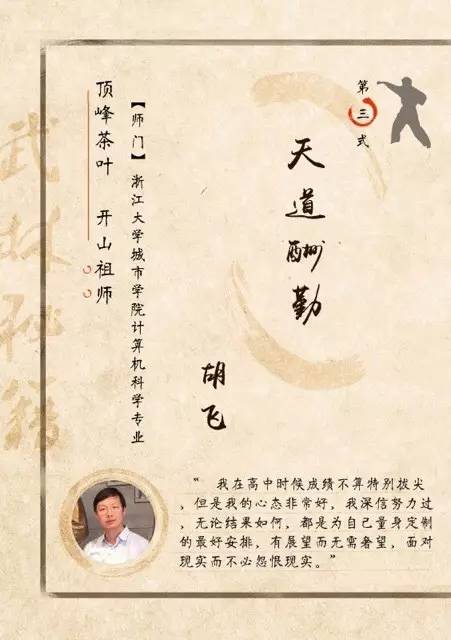 第三式
天道酬勤
胡飞
【师门】浙江大学城市学院计算机科学专业
顶峰茶叶 开山祖师
武林秘籍
“ 我在高中时候成绩不算特别拔尖
，但是我的心态非常好，我深信努力过
，无论结果如何，都是为自己量身定制
的最好安排，有展望而无需奢望，面对
现实而不必怨恨现实。”